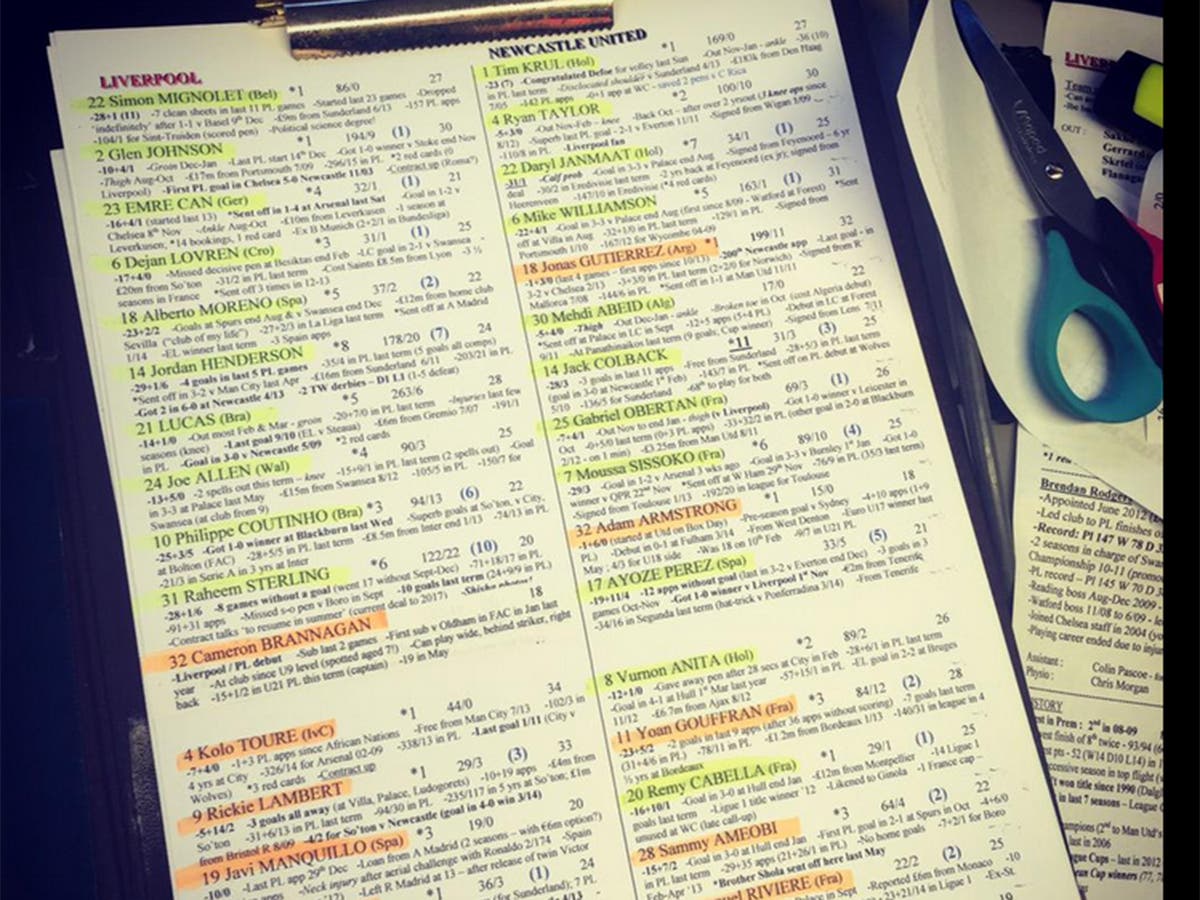 LIVERPOOL
22 Simon MIGNOLET (Bel) *1 86/0 27
-28+1 (11) -7 clean sheets in last 11 PL games -Started last 23 games -Dropped
'indefinitely' after 1-1 v Basel 9th Dec -£9m from Sunderland 6/13 -157 PL apps
-104/1 for Sint-Truiden (scored pen) -Political science degree!
2 Glen JOHNSON *1 194/9 (1) 30
-10+4/1 -Groin Dec-Jan -Last PL start 14th Dec -Got 1-0 winner v Stoke end Nov
-Thigh Aug-Oct -£17m from Portsmouth 7/09 -296/15 in PL *2 red cards (0
Liverpool) -First PL goal in Chelsea 5-0 Newcastle 11/03 -Contract up (Roma?)
23 EMRE CAN (Ger) *4 32/1 (1) 21
-16+4/1 (started last 13) *Sent off in 1-4 at Arsenal last Sat -Goal in 1-2 v
Chelsea 8th Nov -Ankle Aug-Oct -£10m from Leverkusen -1 season at
Leverkusen; *14 bookings, 1 red card -Ex B Munich (2+2/1 in Bundesliga)
6 Dejan LOVREN (Cro) *3 31/1 (1) 25
-17+4/0 -Missed decisive pen at Besiktas end Feb -LC goal in 2-1 v Swansea
£20m from So'ton -31/2 in PL last term -Cost Saints £8.5m from Lyon -3 ½
seasons in France *Sent off 3 times in 12-13
18 Alberto MORENO (Spa) *5 37/2 (2) 22
-23+2/2 -Goals at Spurs end Aug & v Swansea end Dec -£12m from home club
Sevilla ("club of my life") -27+2/3 in La Liga last term *Sent off at A Madrid
1/14 -EL winner last term -3 Spain apps
14 Jordan HENDERSON *8 178/20 (7) 24
-29+1/6 -4 goals in last 5 PL games -35/4 in PL last term (5 goals all comps)
*Sent off in 3-2 v Man City last Apr -£16m from Sunderland 6/11 -203/21 in PL
-Got 2 in 6-0 at Newcastle 4/13 -2 TW derbies – D1 L1 (1-5 defeat)
21 LUCAS (Bra) *5 263/6 28
-14+1/0 -Out most Feb & Mar - groin -20+7/0 in PL last term -Injuries last few
seasons (knee) -Last goal 9/10 (EL v Steaua) -£6m from Gremio 7/07 -191/1
in PL -Goal in 3-0 v Newcastle 5/09 *2 red cards
24 Joe ALLEN (Wal) *4 90/3 25
-13+5/0 -2 spells out this term – knee -15+9/1 in PL last term (2 spells out) -Goal
in 3-3 at Palace last May -£15m from Swansea 8/12 -105/5 in PL -150/7 for
Swansea (at club from 9)
10 Philippe COUTINHO (Bra) *3 94/13 (6) 22
-25+3/5 -Got 1-0 winner at Blackburn last Wed -Superb goals at So'ton, v City,
at Bolton (FAC) -28+5/5 in PL last term -£8.5m from Inter end 1/13 -74/13 in PL
-21/3 in Serie A in 3 yrs at Inter
31 Raheem STERLING *6 122/22 (10) 20
-28+1/6 -8 games without a goal (went 17 without Sept-Dec) -71+18/17 in PL
-91+31 apps -Missed s-o pen v Boro in Sept -10 goals last term (24+9/9 in PL)
-Contract talks 'to resume in summer' (current deal to 2017) -Shisha photos!
32 Cameron BRANNAGAN 18
-Liverpool / PL debut -Sub last 2 games -First sub v Oldham in FAC in Jan last
year -At club since U9 level (spotted aged 7!) -Can play wide, behind striker, right
back -15+1/2 in U21 PL this term (captain) -19 in May
4 Kolo TOURE (IvC) *1 44/0 34
-7+4/0 -1+3 PL apps since African Nations -Free from Man City 7/13 -102/3 in
4 yrs at City -326/14 for Arsenal 02-09 -338/13 in PL -Last goal 1/11 (City v
Wolves) *3 red cards -Contract up
9 Rickie LAMBERT *1 29/3 (3) 33
-5+14/2 -3 goals all away (at Villa, Palace, Ludogorets) -10+19 apps -£4m from
So'ton -31+6/13 in PL last term -94/30 in PL -235/117 in 5 yrs at So'ton; £1m
from Bristol R 8/09 -4/2 for So'ton v Newcastle (goal in 4-0 win 3/14)
19 Javi MANQUILLO (Spa) *3 19/0 20
-10/0 -Last PL app 29th Dec -Loan from A Madrid (2 seasons – with €6m option?)
-Neck injury after aerial challenge with Ronaldo 2/174 -Spain
-Left R Madrid at 13 – after release of twin Victor
*1 36/3 (1) 24
NEWCASTLE UNITED
1 Tim KRUL (Hol) *1 169/0 27
-23 (7) -Congratulated Defoe for volley last Sun -Out Nov-Jan - ankle -36 (10)
in PL last term -Dislocated shoulder v Sunderland 4/13 -£183k from Den Haag
7/05 -142 PL apps -0+1 app at WC - saved 2 pens v C Rica
4 Ryan TAYLOR *2 100/10 30
-5+3/0 -Out Nov-Feb – knee -Back Oct – after over 2 yrs out (3 knee ops since
8/12) -Superb last PL goal - 2-1 v Everton 11/11 -Signed from Wigan 1/09
-110/8 in PL -Liverpool fan
22 Daryl JANMAAT (Hol) *7 34/1 (1) 25
-31/1 -Calf prob -Goal in 3-3 v Palace end Aug -Signed from Feyenoord – 6 yr
deal -30/2 in Eredivisie last term -2 yrs back at Feyenoord (ex jr); signed from
Heerenveen -147/10 in Eredivisie (*4 red cards)
6 Mike WILLIAMSON *5 163/1 (1) 31
-22+4/1 -Goal in 3-3 v Palace end Aug (first since 8/09 - Watford Forest) *Sent
off at Villa in Aug -32+1/0 in PL last term -129/1 in PL -Signed from
Portsmouth 1/10 -167/12 for Wycombe 04-09
18 Jonas GUTIERREZ (Arg) *1 199/11 32
-1+3/0 (last 4 games – first apps since 10/13) -200th Newcastle app -Last goal - in
3-2 v Chelsea 2/13 -3+3/0 in PL last term (2+2/0 for Norwich) -Signed from R
Mallorca 7/08 -144/6 in PL *Sent off in 1-1 at Man Utd 11/11
30 Mehdi ABEID (Alg) 17/0 22
-5+4/0 -Thigh -Out Dec-Jan - ankle -Broken toe in Oct (cost Algeria debut)
*Sent off at Palace in LC in Sept -12+5 apps (5+4 PL) -Debut in LC at Forest
9/11 -At Panathinaikos last term (9 goals; Cup winner) -Signed from Lens 7/11
14 Jack COLBACK *11 31/3 (3) 25
-28/3 -3 goals in last 11 apps -Free from Sunderland -28+5/3 in PL last term
(goal in 3-0 at Newcastle 1st Feb) -143/7 in PL *Sent off on PL debut at Wolves
5/10 -136/5 for Sunderland -68th to play for both
25 Gabriel OBERTAN (Fra) 69/3 (1) 26
-7+4/1 -Out Nov to end Jan - thigh (v Liverpool) -Got 1-0 winner v Leicester in
Oct -0+5/0 last term (0+3 PL apps) -33+32/1 in PL (other goal in 2-0 at Blackburn
2/12 - on 1 min) -£3.25m from Man Utd 8/11
7 Moussa SISSOKO (Fra) *6 89/10 (4) 25
-29/3 -Goal in 1-2 v Arsenal 3 wks ago -Goal in 3-3 v Burnley 1st Jan -Got 1-0
winner v QPR 22nd Nov *Sent off at W Ham 29th Nov -76/9 in PL (35/3 last term)
-Signed from Toulouse 1/13 -192/20 in league for Toulouse
32 Adam ARMSTRONG *1 15/0 18
-1+6/0 (started at Utd on Box Day) -Pre-season goal v Sydney -4+10 apps (1+9
PL) -Debut in 0-1 at Fulham 3/14 -From West Denton -Euro U17 winner last
May ; 4/3 for U18 side -Was 18 on 10th Feb -9/7 in U21 PL
17 AYOZE PEREZ (Spa) 33/5 (5) 21
-19+11/4 -12 apps without goal (last in 3-2 v Everton end Dec) -3 goals in 3
games Oct-Nov -Got 1-0 winner v Liverpool 1st Nov -€2m from Tenerife
-34/16 in Segunda last term (hat-trick v Ponferradina 3/14) -From Tenerife
8 Vurnon ANITA (Hol) *2 89/2 26
-12+1/0 -Gave away pen after 28 secs at City in Feb -28+6/1 in PL last term
-Goal in 4-1 at Hull 1st Mar last year -57+15/1 in PL -EL goal in 2-2 at Bruges
11/12 -£6.7m from Ajax 8/12
11 Yoan GOUFFRAN (Fra) *3 84/12 (2) 28
-23+5/2 -2 goals in last 9 apps (after 36 apps without scoring) -7 goals last term
(31+4/6 in PL) -78/11 in PL -£1.2m from Bordeaux 1/13 -140/31 in league in 4
½ yrs at Bordeaux
20 Remy CABELLA (Fra) *1 29/1 (1) 25
-16+10/1 -Goal in 3-0 at Hull end Jan -£12m from Montpellier -14 Ligue 1
goals last term -Ligue 1 title winner '12 -Likened to Ginola -1 France cap –
unused at WC (late call-up)
28 Sammy AMEOBI *3 64/4 (2) 22
-15+7/2 -Goal in 3-0 at Hull end Jan -First PL goal in 2-1 at Spurs in Oct -4+6/0
in PL last term -29+35 apps (21+26/1 in PL) -No home goals -7+2/1 for Boro
Feb-Apr '13 *Brother Shola sent off here last May
RIVIERE (Fra) 22/2 (2) 25
LIVER
Team
OUT :
Gerrard
Skrtel
Flanaga
Brendan Rodgers
-Appointed June 2012
-Led club to PL finishes o
-Record: Pl 147 W 78 D 3
-2 seasons in charge of Swan
Championship 10-11 (promo
-PL record – Pl 145 W 70 D
-Reading boss Aug-Dec 2009 -
-Watford boss 11/08 to 6/09 -
-Joined Chelsea staff in 2004
-Playing career ended due to injur
Assistant : Colin Pascoe
Physio : Chris Morgan
STORY
st in Prem : 2nd in 08-09